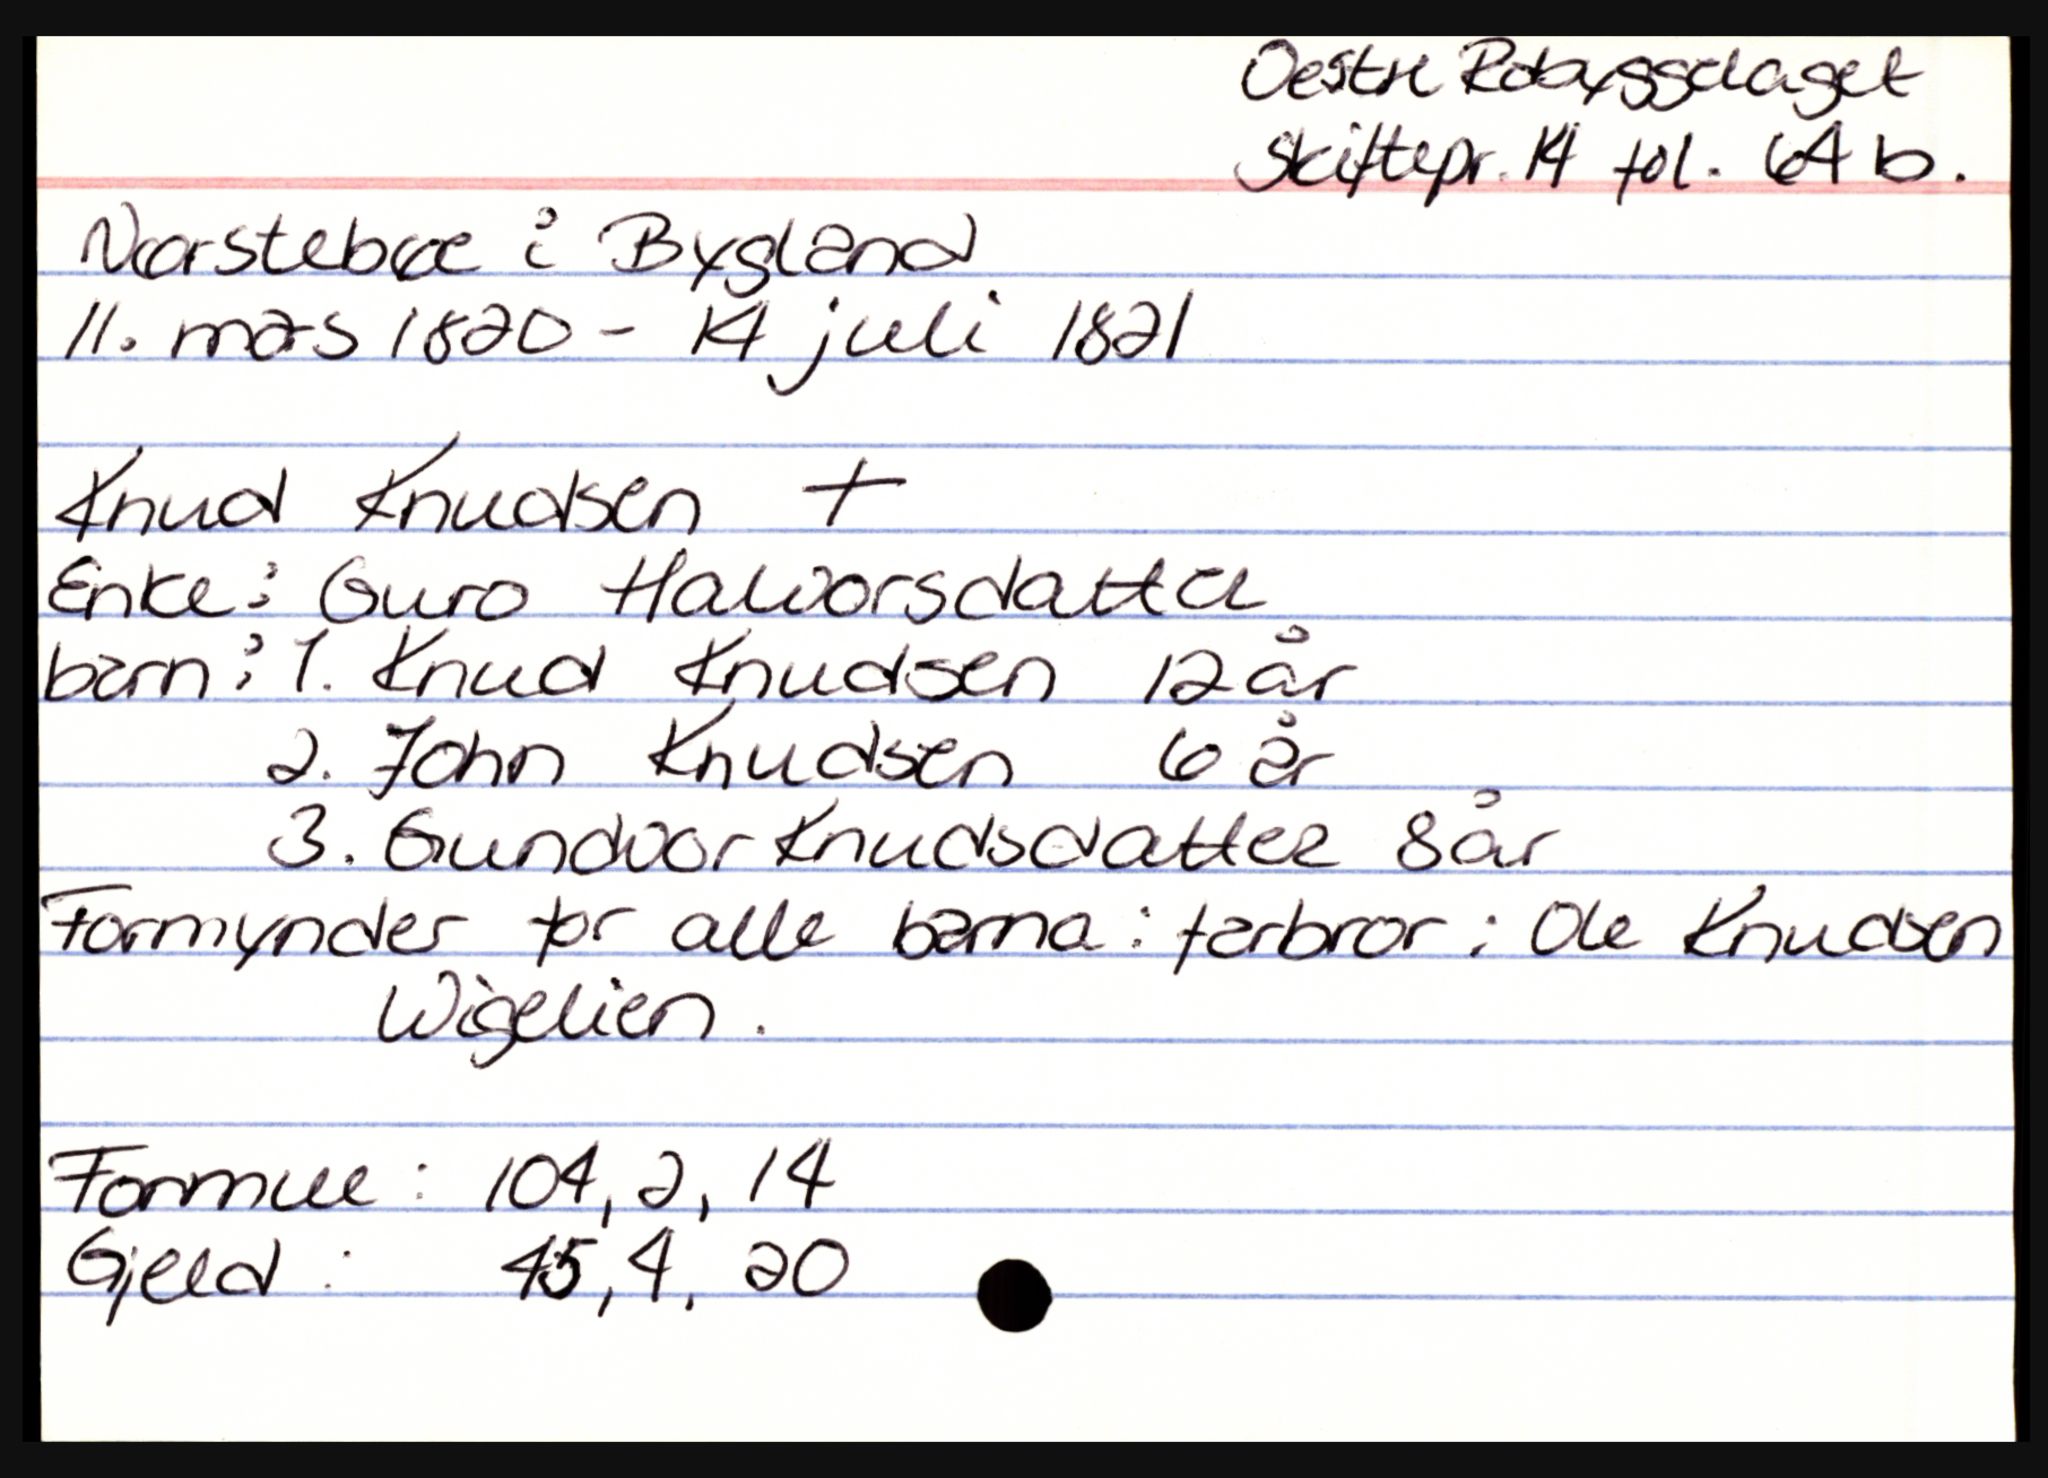 Oestre Robyggelaget
Skiftepr. 14 fol. 64 b.
Norstebøe i Bygland
11. mars 1820 - 14 juli 1821
Knud Knudsen +
Enke: Guro Halvorsdatter
barn: 1. Knud Knudsen 12 år
2. John Knudsen 6 år
3. Gundvor Knudsdatter 8 år
Formynder for alle barna: farbror: Ole Knudsen
Wigelien.
Formue: 104, 2, 14
Gjeld: 45, 4, 20